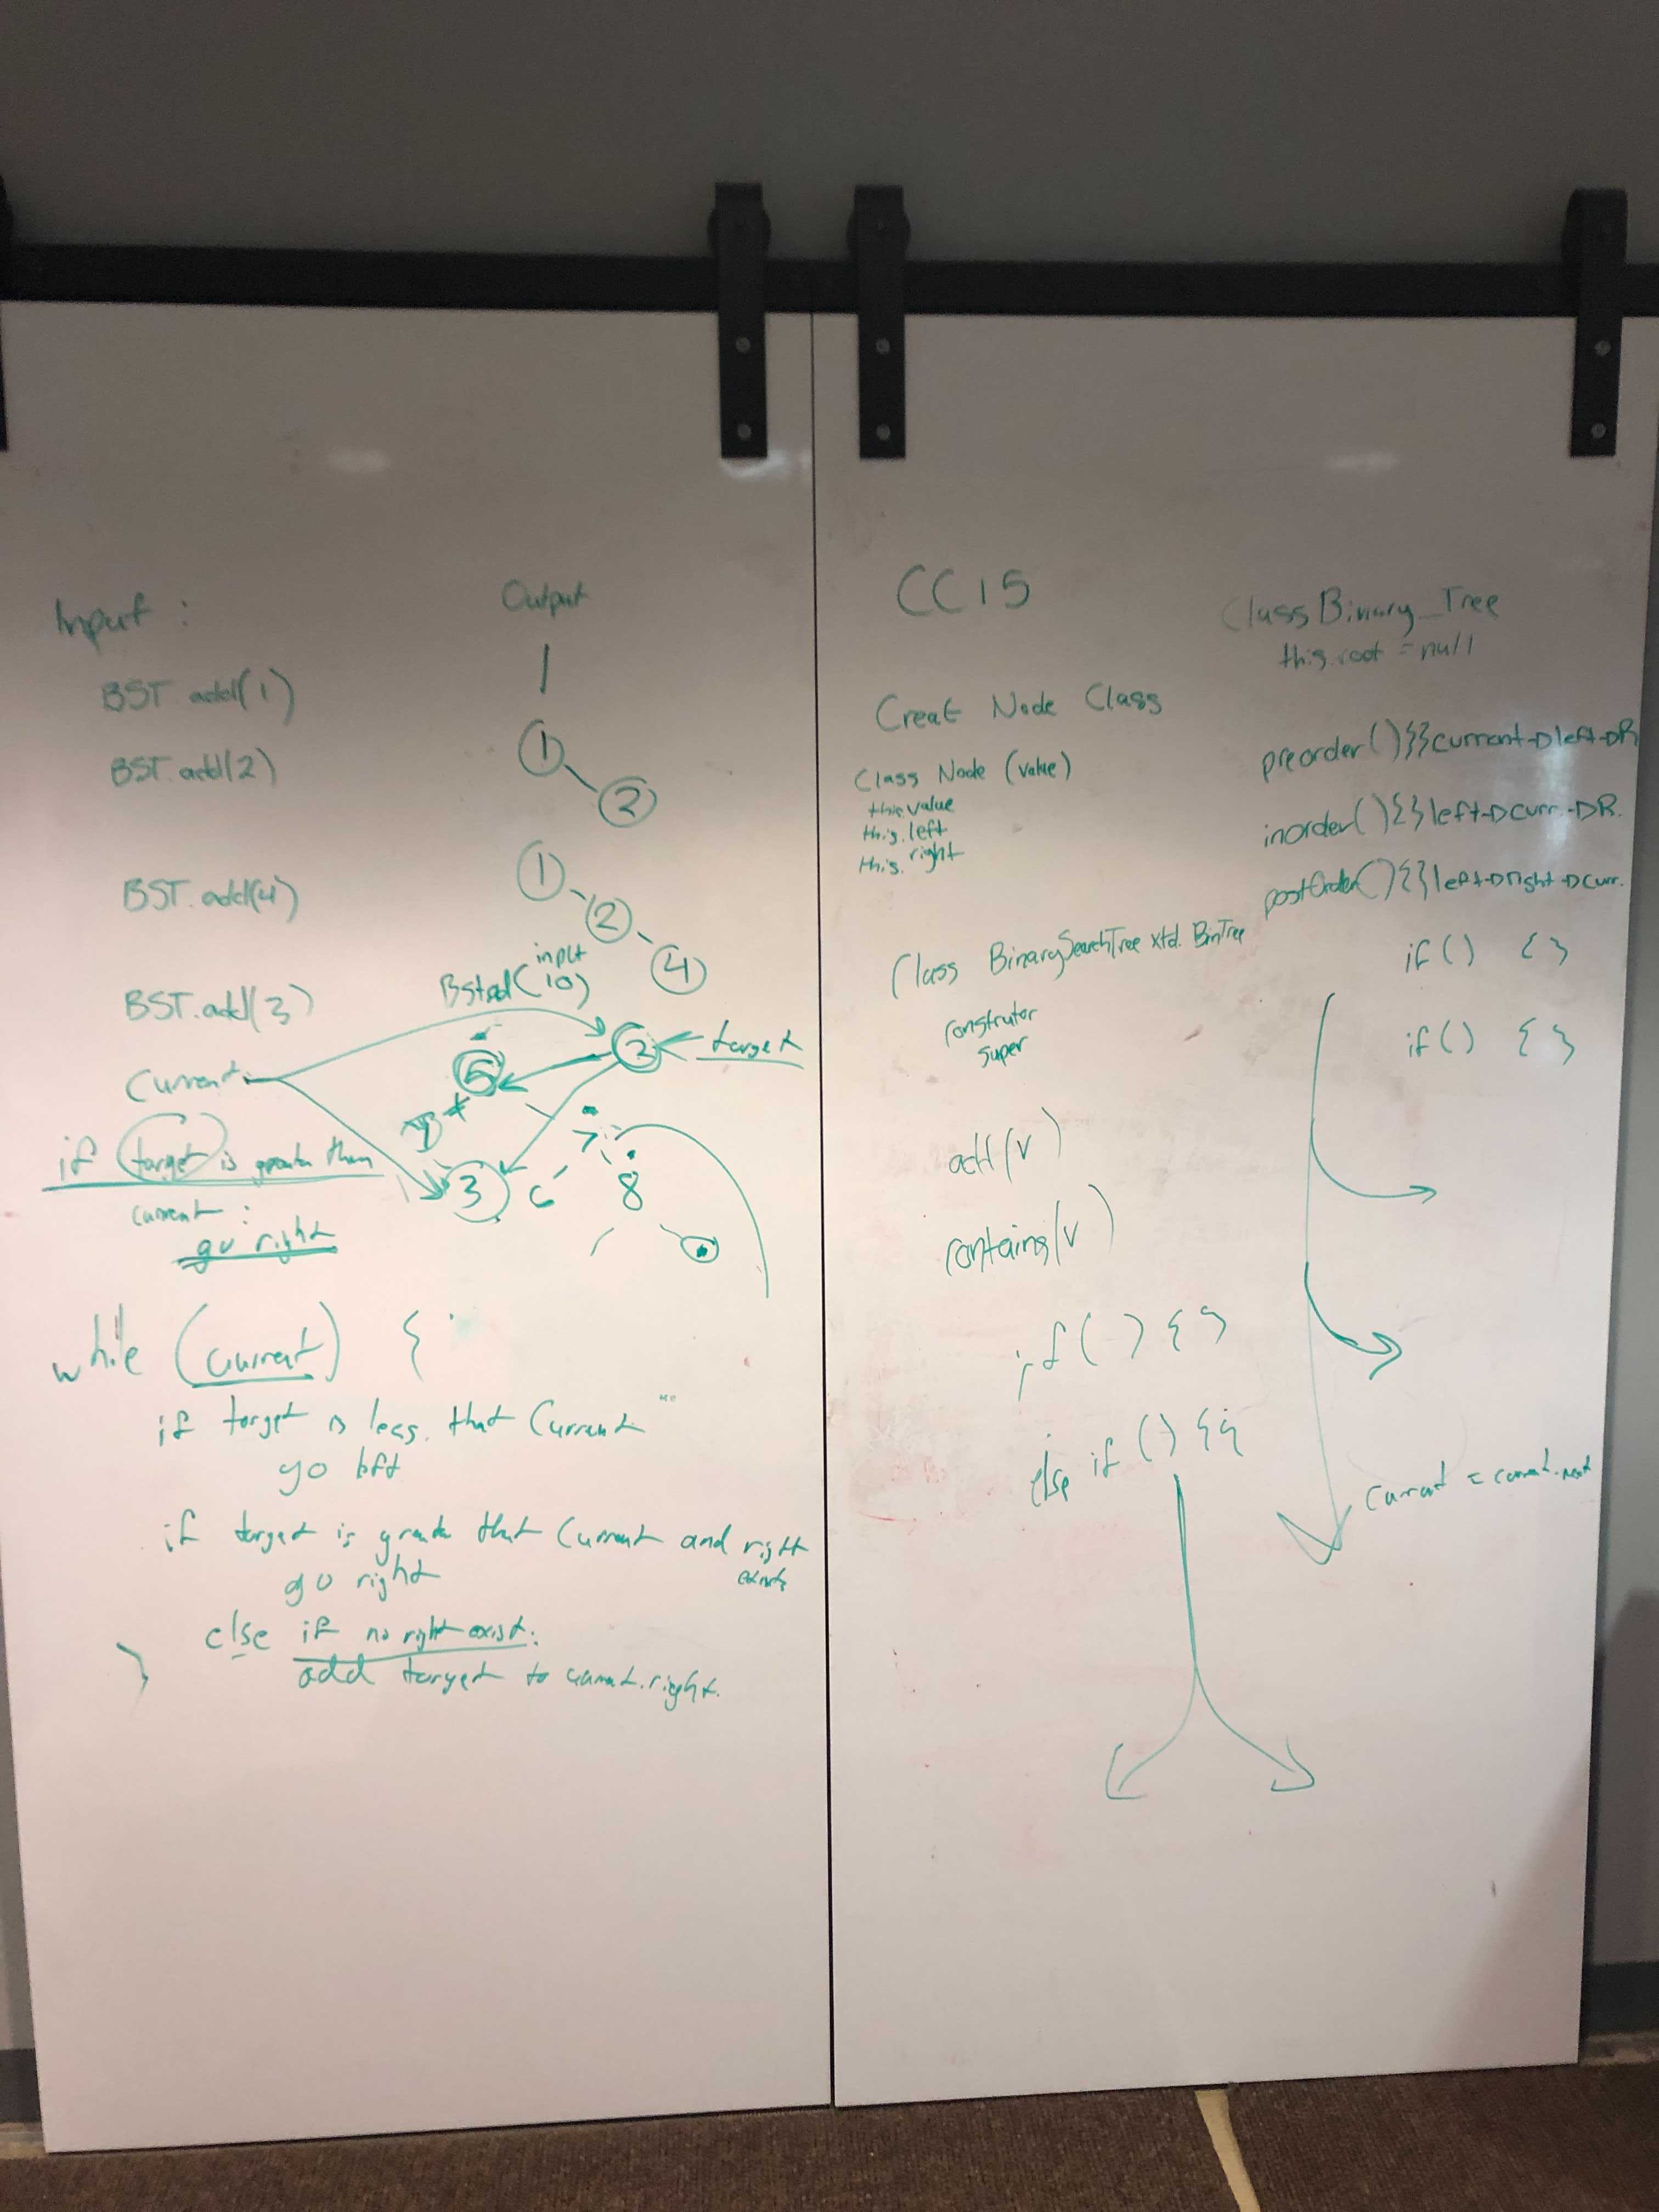 Input :
Output
BST add(1)
1
BST.add(2)
1
2
BST.add(4)
1
2
4
BST.add(3)
input
Bstad(10)
2
target
Current
5
if target is greater than
current :
go right
3
6
7
8
while (current) {
if target is less that Current
go left
if target is greater that Current and right
exists
go right
else if no right exist:
add target to current.right.
}
CC15
Creat Node Class
Class Node (value)
this.value
this.left
this.right
Class BinarySearchTree xtd. BinTree
construtor
super
add(v)
contains(v)
if ( ) { }
else if () {
Class Binary_Tree
this.root = null
preorder(){}current→left→R
inorder(){}left→curr.→R.
postOrder(){}left→right→curr.
if () { }
if () { }
current = current.next